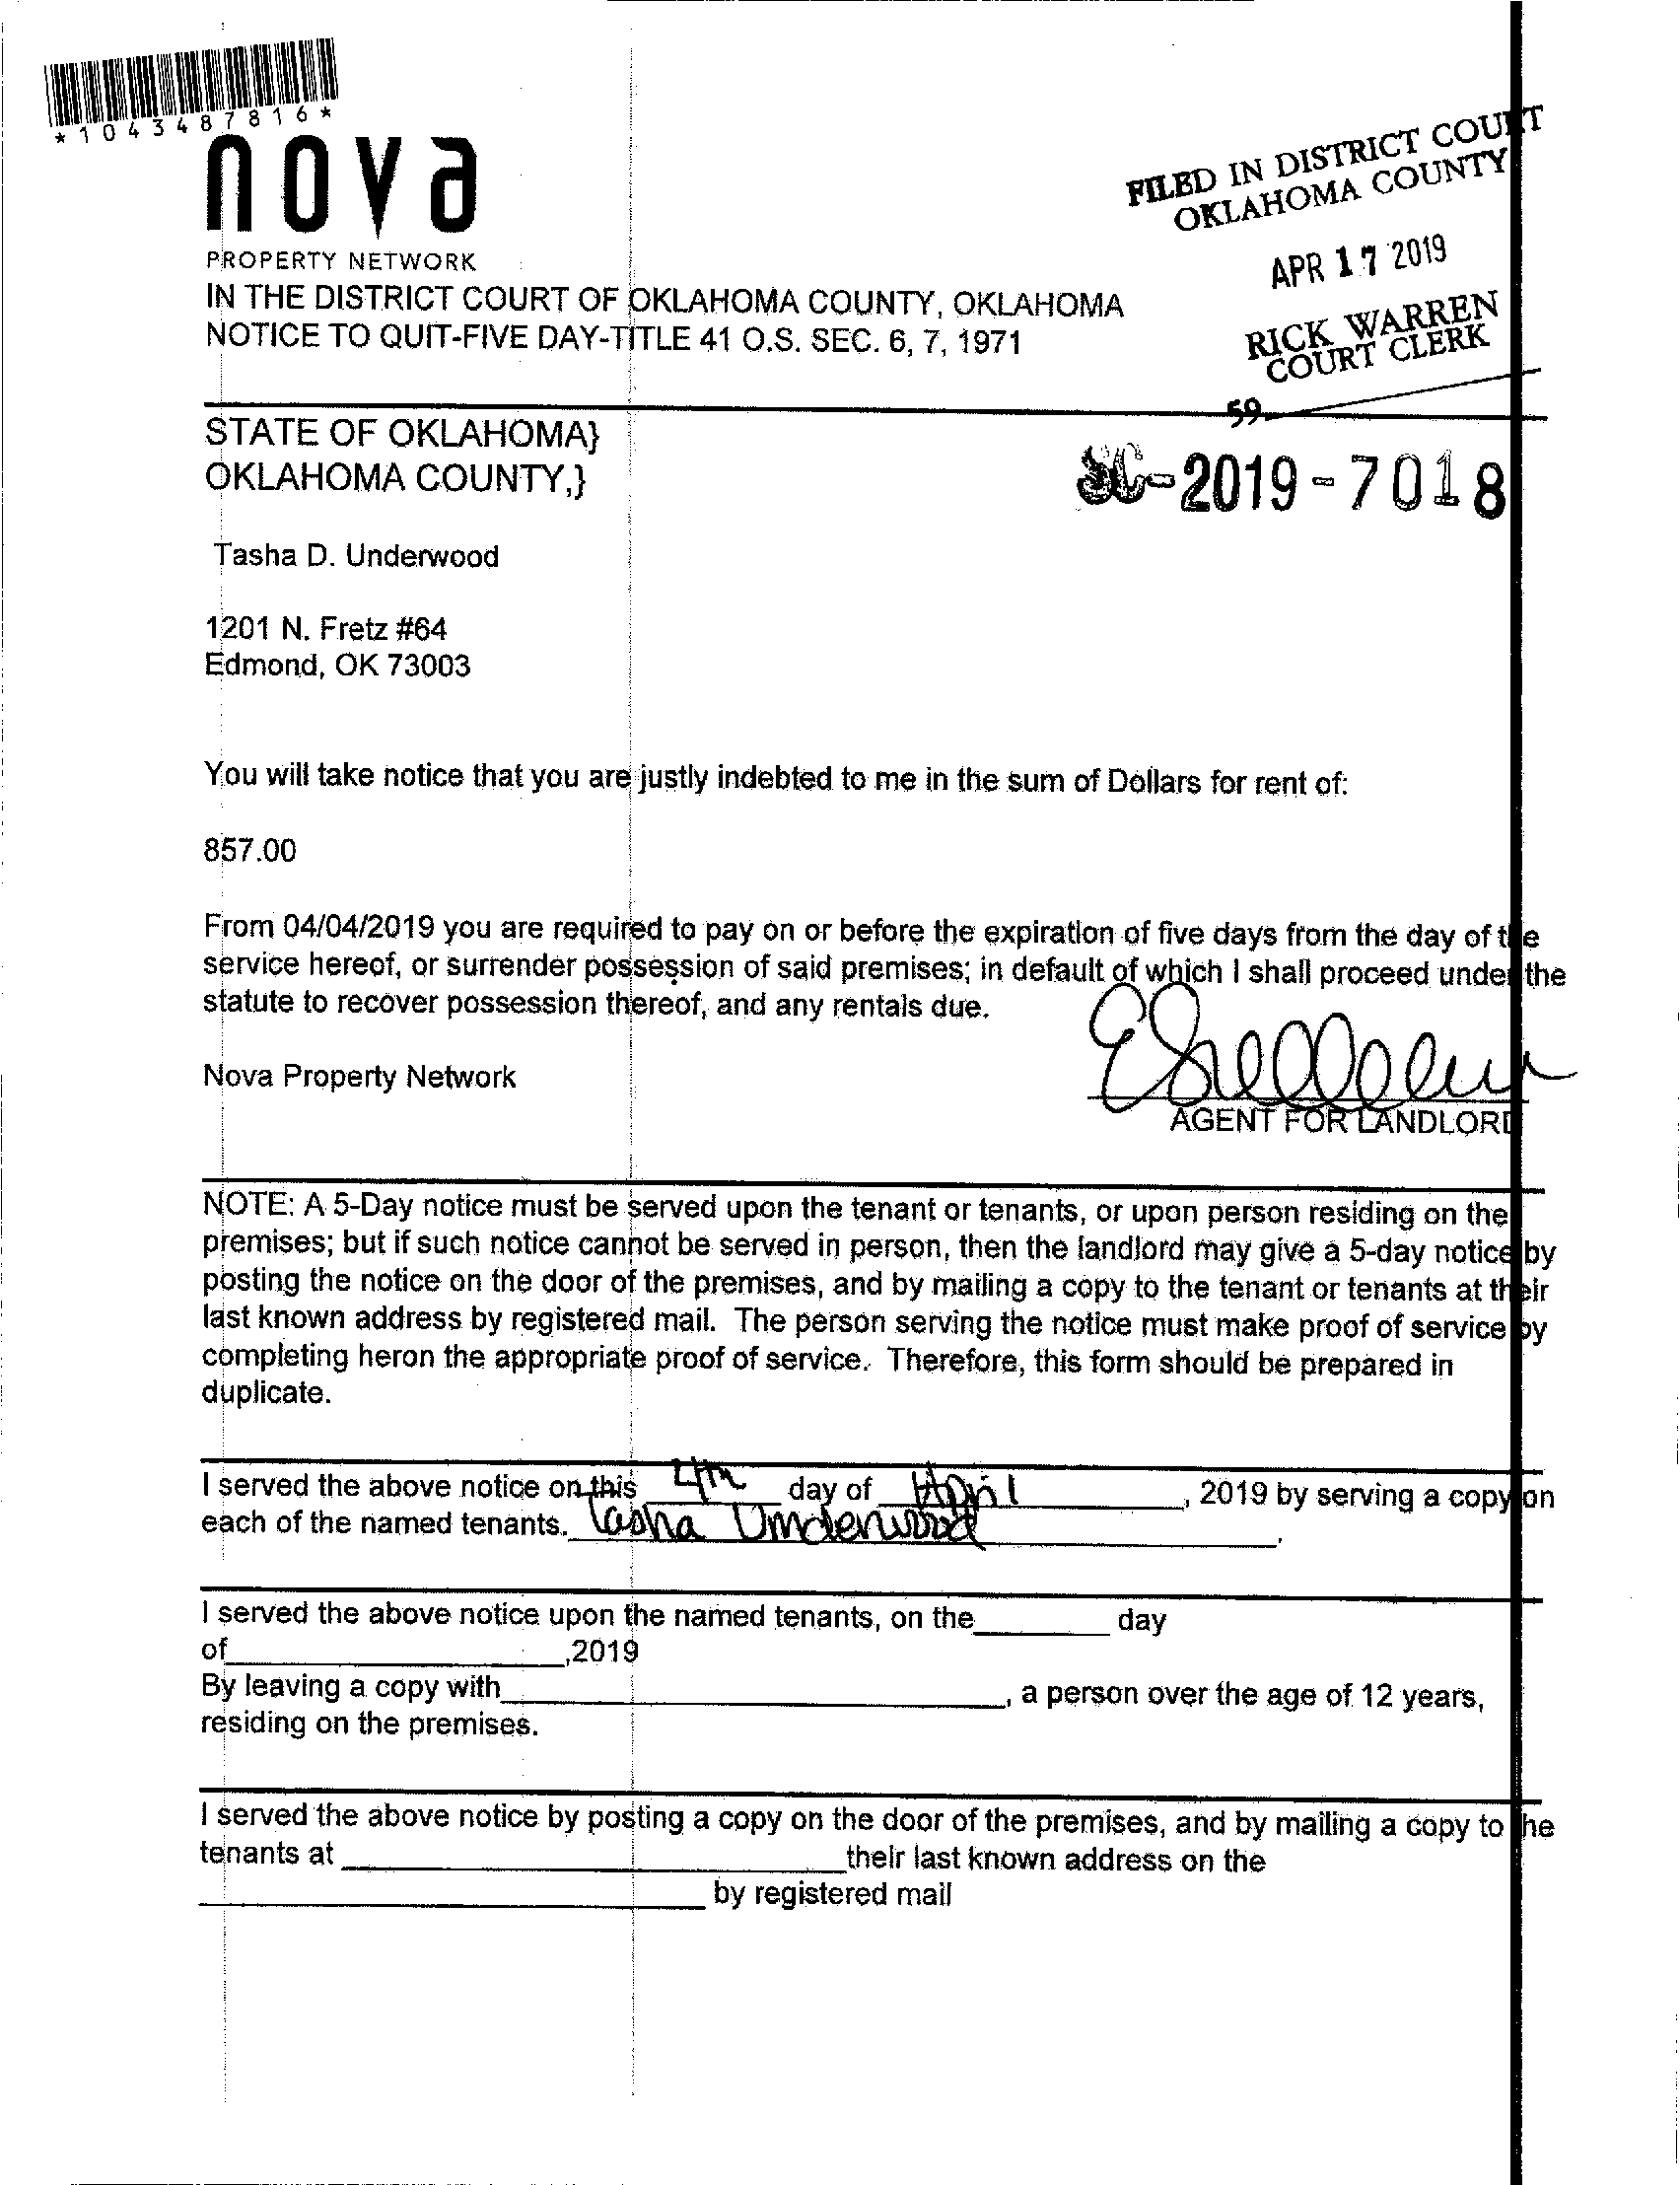 *1043487816*
nova
PROPERTY NETWORK
FILED IN DISTRICT COURT
OKLAHOMA COUNTY
APR 17 2019
RICK WARREN
COURT CLERK
59
IN THE DISTRICT COURT OF OKLAHOMA COUNTY, OKLAHOMA
NOTICE TO QUIT-FIVE DAY-TITLE 41 O.S. SEC. 6, 7, 1971
STATE OF OKLAHOMA}
OKLAHOMA COUNTY,}
SC-2019-7018
Tasha D. Underwood
1201 N. Fretz #64
Edmond, OK 73003
You will take notice that you are justly indebted to me in the sum of Dollars for rent of:
857.00
From 04/04/2019 you are required to pay on or before the expiration of five days from the day of the
service hereof, or surrender possession of said premises; in default of which I shall proceed under the
statute to recover possession thereof, and any rentals due.
Nova Property Network
AGENT FOR LANDLORD
NOTE: A 5-Day notice must be served upon the tenant or tenants, or upon person residing on the
premises; but if such notice cannot be served in person, then the landlord may give a 5-day notice by
posting the notice on the door of the premises, and by mailing a copy to the tenant or tenants at their
last known address by registered mail. The person serving the notice must make proof of service by
completing heron the appropriate proof of service. Therefore, this form should be prepared in
duplicate.
I served the above notice on this 4th day of April, 2019 by serving a copy on
each of the named tenants. Tasha Underwood.
I served the above notice upon the named tenants, on the ______ day
of ______,2019
By leaving a copy with ______, a person over the age of 12 years,
residing on the premises.
I served the above notice by posting a copy on the door of the premises, and by mailing a copy to the
tenants at ______ their last known address on the
______ by registered mail